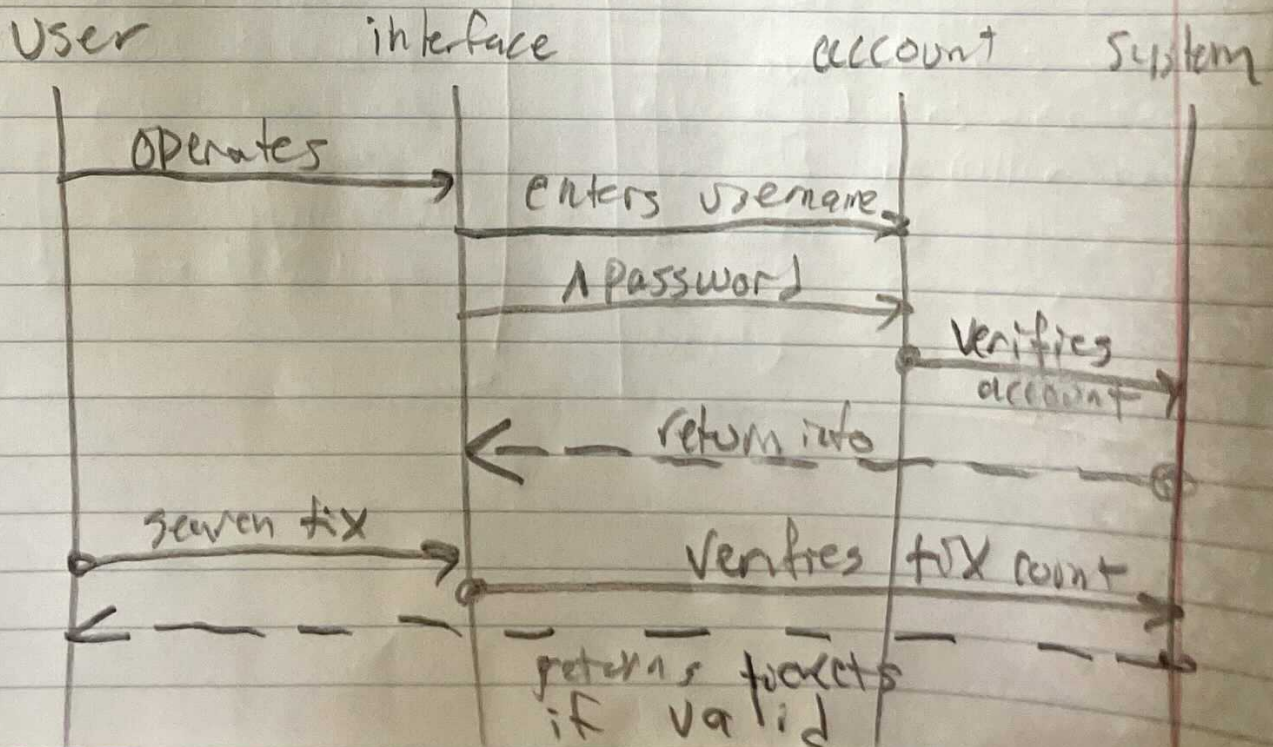 User interface account system
operates
enters username
^ password
verifies
account
return info
search tix
verifies tix count
returns tickets
if valid